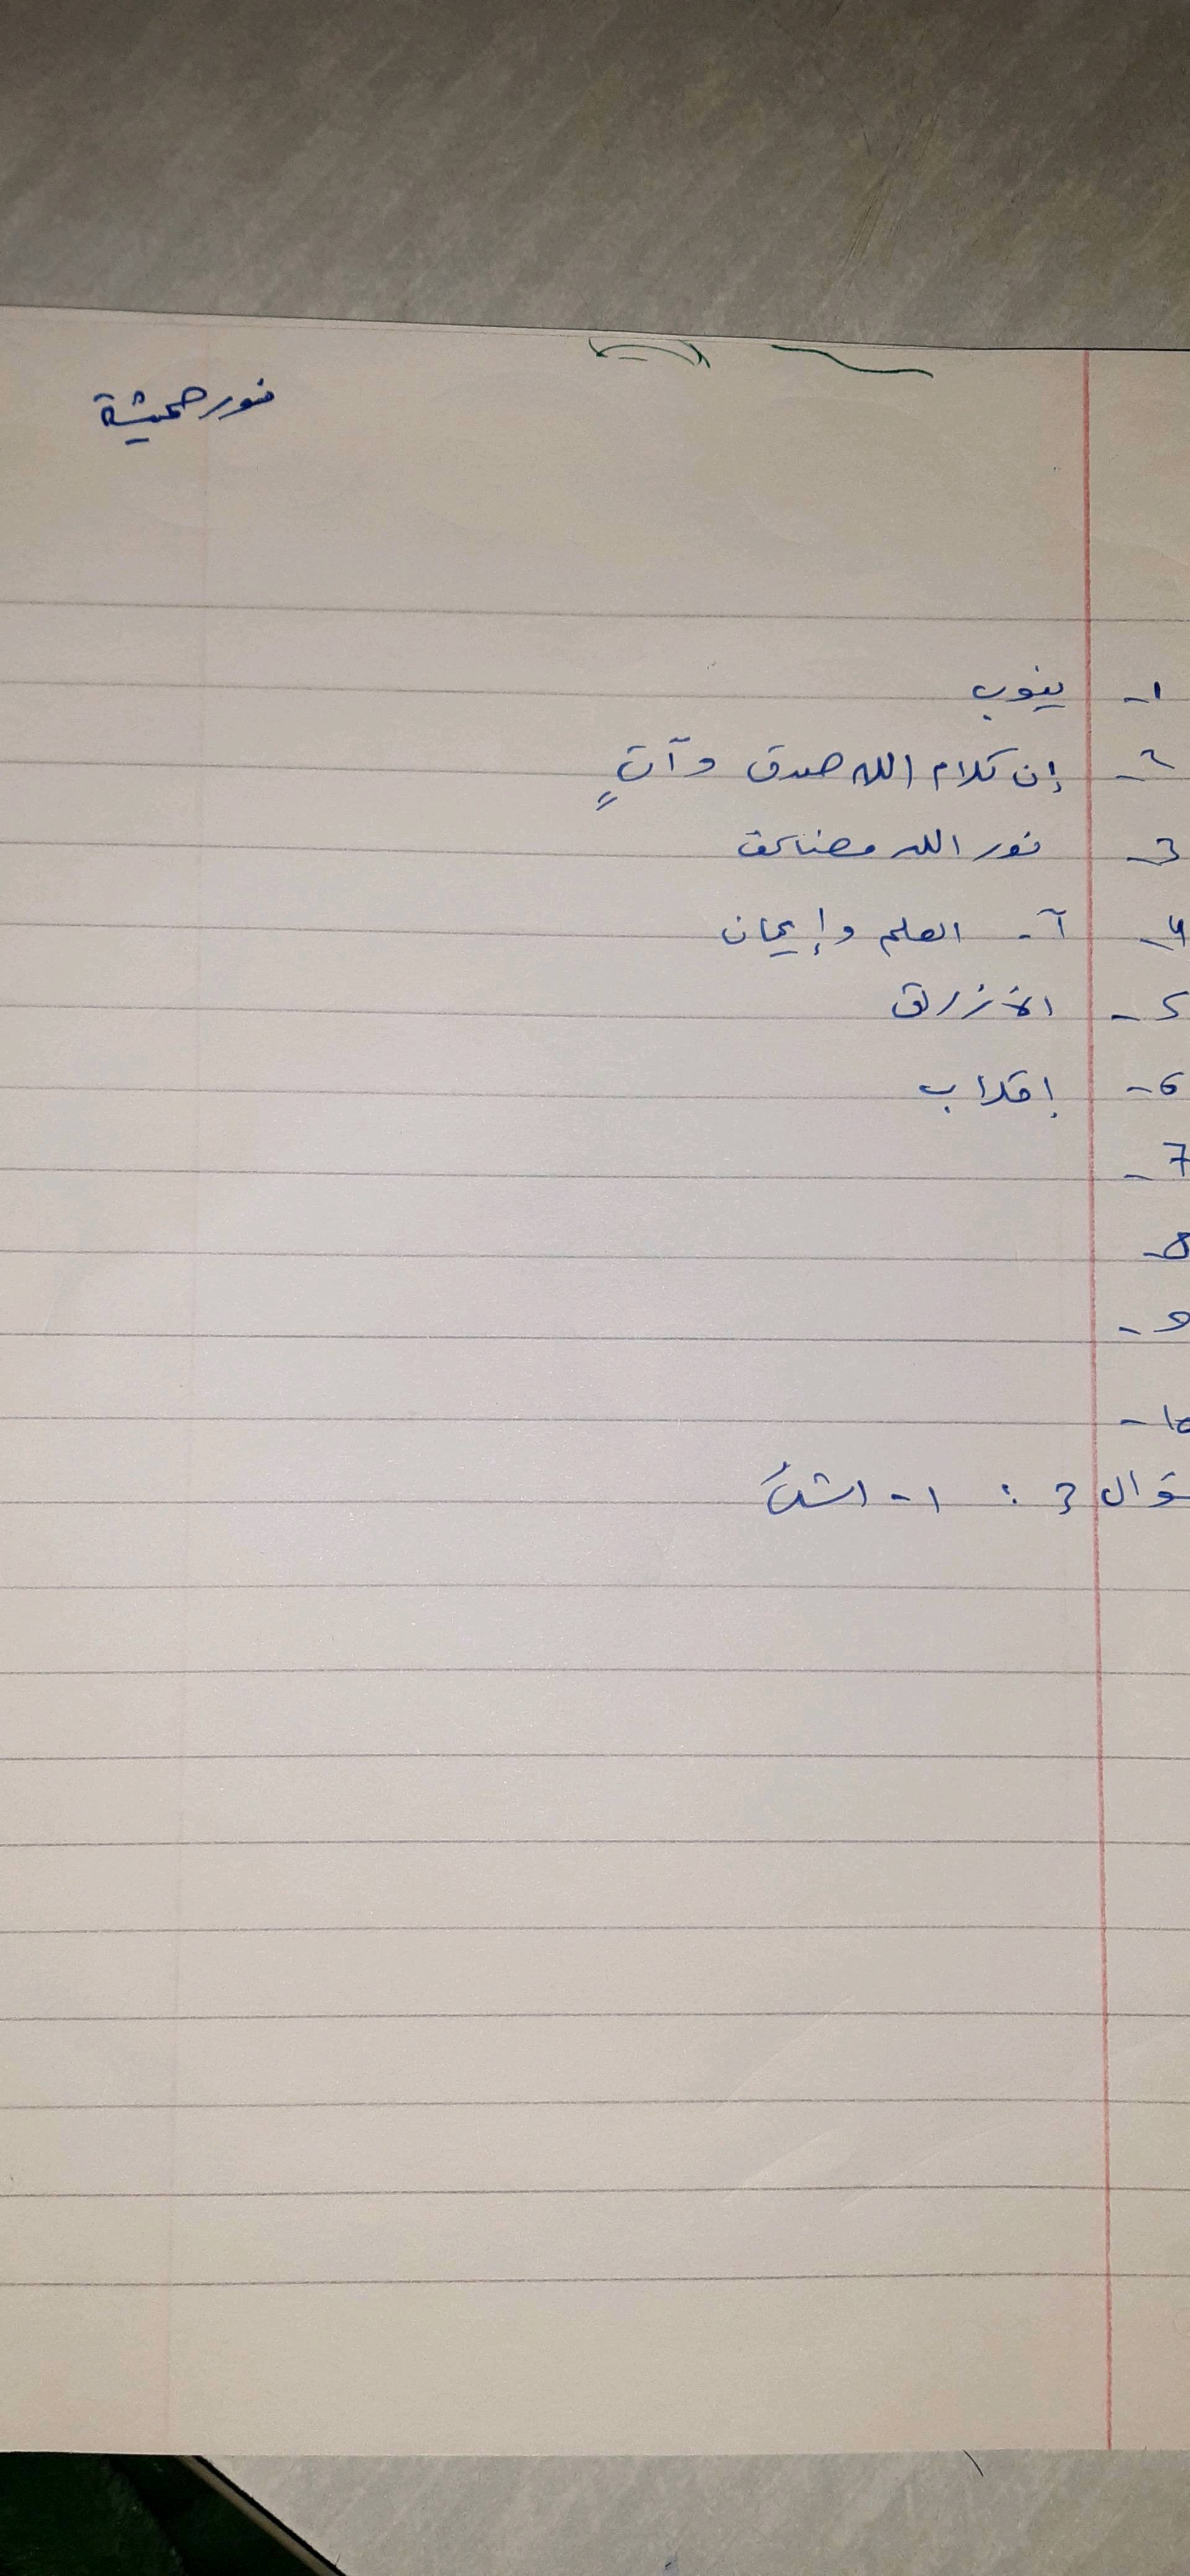 نور حميشة
1- ينوب
2- إن كلام الله صدق وآتٍ
3- نور الله
4- آ- العلم وإيمان
5- الأزرق
6- إقلاب
7-
8-
9-
10-
ؤال 3: 1-